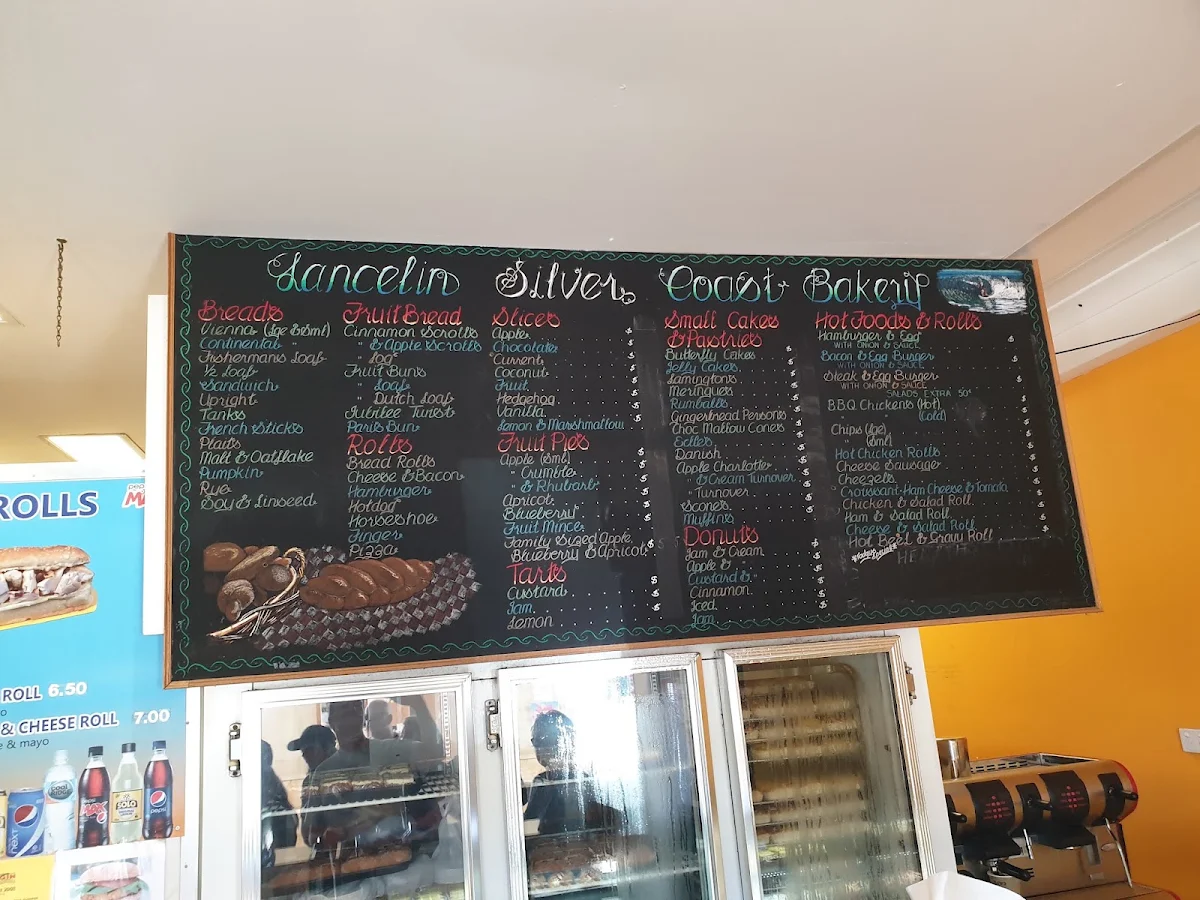 Lancelin Silver Coast Bakery
Breads
Vienna (Lge & Sml)
Continental "
Fishermans Loaf
½ Loaf
Sandwich
Upright
Tanks
French Sticks
Plaits
Malt & Oatflake
Pumpkin
Rye
Soy & Linseed
Fruit Bread
Cinnamon Scrolls
" & Apple Scrolls
" Log
Fruit Buns
" Loaf
" Dutch Loaf
Jubilee Twist
Paris Bun
Rolls
Bread Rolls
Cheese & Bacon
Hamburger
Hotdog
Horseshoe
Finger
Pizza
Slices
Apple $
Chocolate
Current
Coconut
Fruit
Hedgehog
Vanilla
Lemon & Marshmallow
Fruit Pies
Apple (Sml) $
" Crumble $
" & Rhubarb $
Apricot
Blueberry
Fruit Mince
Family Sized Apple,
Blueberry & Apricot $
Tarts
Custard $
Jam $
Lemon $
Small Cakes
& Pastries
Butterfly Cakes $
Jelly Cakes
Lamingtons
Meringues
Rumballs
Gingerbread Persons
Choc Mallow Cones
Eccles
Danish
Apple Charlotte
" & Cream Turnover
" Turnover
Scones
Muffins
Donuts
Jam & Cream
Apple &
Custard &
Cinnamon
Iced
Jam
Hot Foods & Rolls
Hamburger & Egg $
WITH ONION & SAUCE
Bacon & Egg Burger
WITH ONION & SAUCE
Steak & Egg Burger $
WITH ONION & SAUCE
SALADS EXTRA 50¢
B.B.Q. Chickens (Hot)
(Cold)
Chips (Lge)
" (Sml)
Hot Chicken Rolls
Cheese Sausage
Cheezels
Croissant-Ham Cheese & Tomato
Chicken & Salad Roll
Ham & Salad Roll
Cheese & Salad Roll
Hot Beef & Gravy Roll
ROLLS
ROLL 6.50
& CHEESE ROLL 7.00
e & mayo
NEXT
cool ridge
pepsi
MAX
SOLO
pepsi